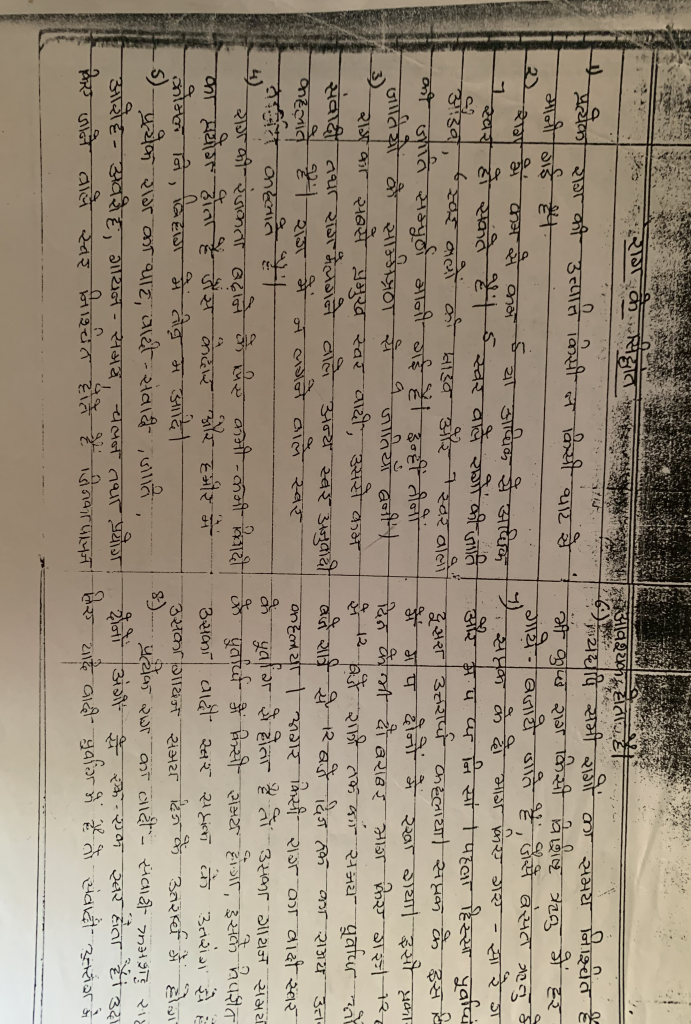 राग के सिद्धांत
1) प्रत्येक राग की उत्पत्ति किसी न किसी थाट से
मानी गई है।
2) राग में कम से कम 5 या अधिक से अधिक
7 स्वर हो सकते हैं। 5 स्वर वाले रागों की जाति
औडव, 6 स्वर वालों की षाडव और 7 स्वर वालों
की जाति सम्पूर्ण मानी गई है। इन्हीं तीनों
जातियों के सम्मिश्रण से 9 जातियाँ बनीं।
3) राग का सबसे प्रमुख स्वर वादी, उससे कम
संवादी तथा राग में लगने वाले अन्य स्वर अनुवादी
कहलाते हैं। राग में न लगने वाले स्वर
कहलाते हैं।
4) राग की रंजकता बढ़ाने के लिए कभी-कभी विवादी
का प्रयोग होता है जैसे केदार और हमीर में
कोमल नि, बिहाग में तीव्र म आदि।
5) प्रत्येक राग का थाट, वादी-संवादी, जाति,
आरोह-अवरोह, गायन-समय, चलन तथा प्रयोग
किए जाने वाले स्वर निश्चित होते हैं जिनका पालन
आवश्यक होता है।
6) यद्यपि सभी रागों का समय निश्चित है
जो कुछ राग किसी विशेष ऋतु में हर
गाये-बजाये जाते हैं, जैसे बसंत ऋतु में
7) सप्तक के दो भाग किए गए - सा रे ग
और म प ध नि सां। पहला हिस्सा पूर्वार्ध
दूसरा उत्तरार्ध कहलाया। सप्तक के इस
में म प दोनों में रखा गया। इसी प्रकार
दिन के भी दो बराबर भाग किए गए। 12
से 12 बजे रात्रि तक का समय पूर्वार्ध
बजे रात्रि से 12 बजे दिन तक का समय
कहलाया। अगर किसी राग का वादी स्वर
के पूर्वांग से होता है तो उसका गायन समय
के पूर्वार्ध में किसी समय होगा, इसके विपरीत
उसका वादी स्वर सप्तक के उत्तरांग से
उसका गायन समय दिन के उत्तरार्ध में होगा
8) प्रत्येक राग का वादी-संवादी
दोनों अंगों से एक-एक स्वर होता है।
लिए यदि वादी पूर्वांग में है तो संवादी उत्तरांग में